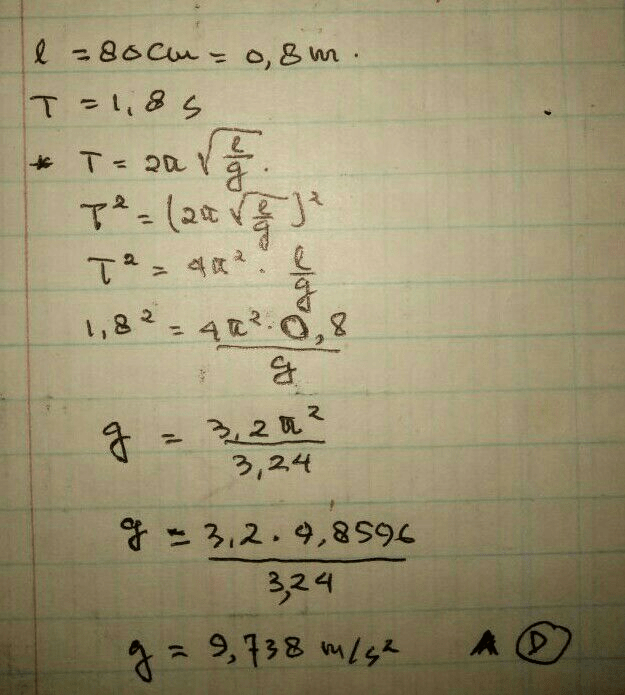 l = 80cm = 0,8m.
T = 1,8 s
* T = 2π √(l/g).
T² = (2π √(l/g))²
T² = 4π² · l/g
1,8² = 4π²·0,8 / g
g = 3,2π² / 3,24
g = 3,2 · 9,8596 / 3,24
g = 9,738 m/s² D